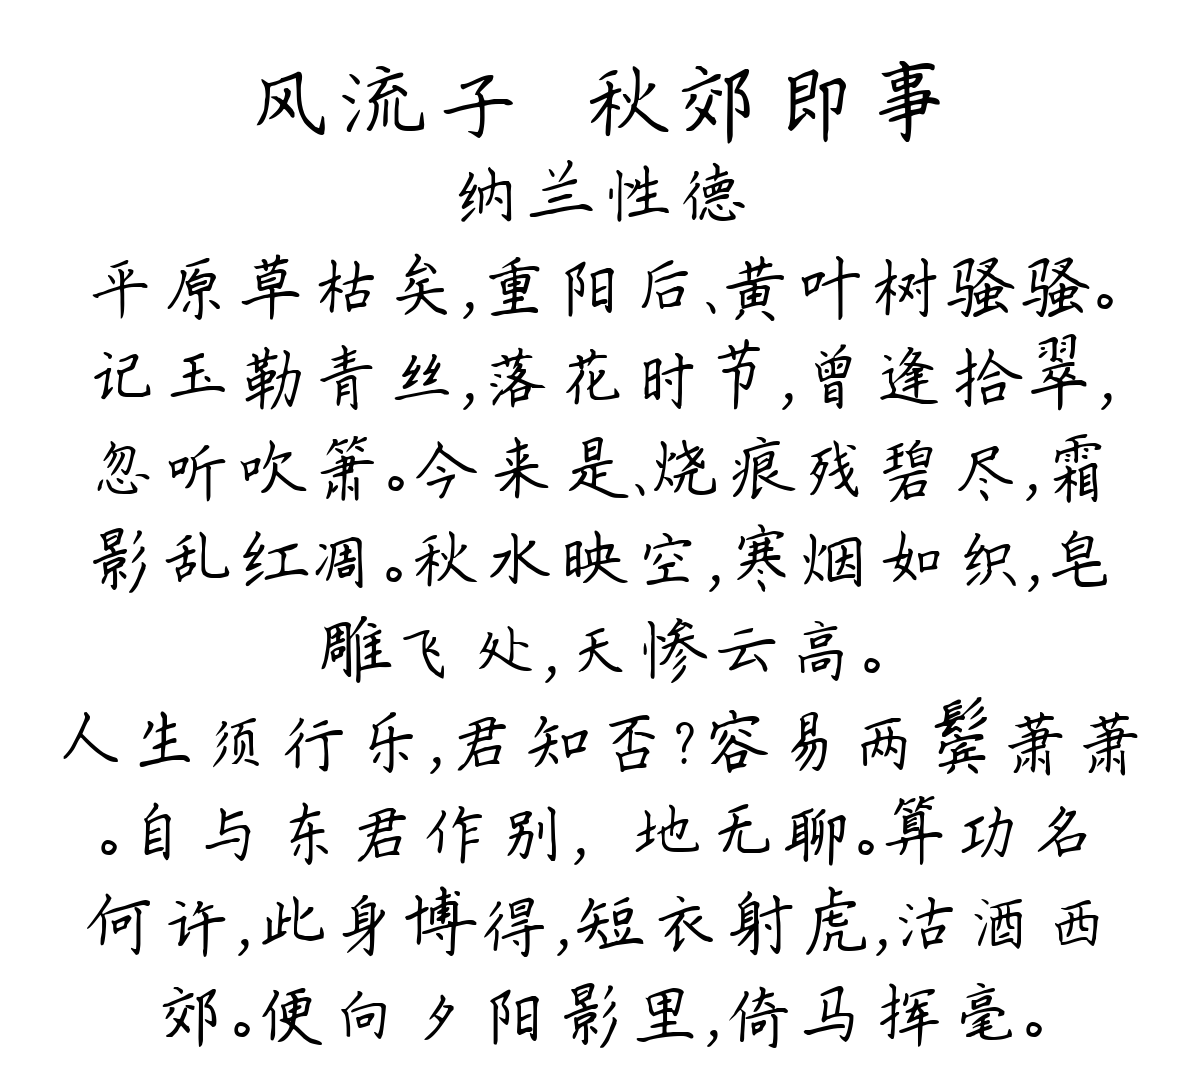 风流子 秋郊即事
纳兰性德
平原草枯矣,重阳后、黄叶树骚骚。
记玉勒青丝,落花时节,曾逢拾翠,
忽听吹箫。今来是、烧痕残碧尽,霜
影乱红凋。秋水映空,寒烟如织,皂
雕飞处,天惨云高。
人生须行乐,君知否?容易两鬓萧萧
。自与东君作别, 地无聊。算功名
何许,此身博得,短衣射虎,沽酒西
郊。便向夕阳影里,倚马挥毫。